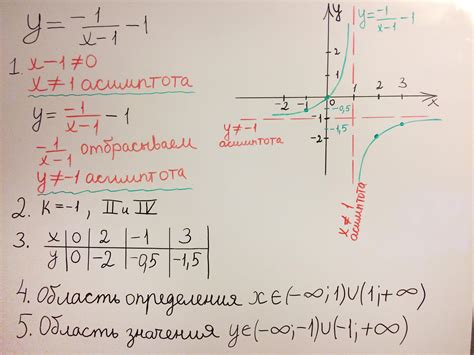 y = -1/(x-1) - 1
1. x-1≠0
x≠1 асимптота
y = -1/(x-1) - 1
-1/(x-1) отбрасываем
y≠-1 асимптота
2. K=-1, II и IV
3. x | 0 | 2 | -1 | 3
y | 0 | -2 | -0,5 | -1,5
4. Область определения x∈(-∞;1)∪(1;+∞)
5. Область значения y∈(-∞;-1)∪(-1;+∞)
y
y = -1/(x-1) - 1
2
1
-2 -1 0 1 2 3 x
-0,5
-1
-1,5
-2
y≠-1
асимптота
x≠1
асимптота